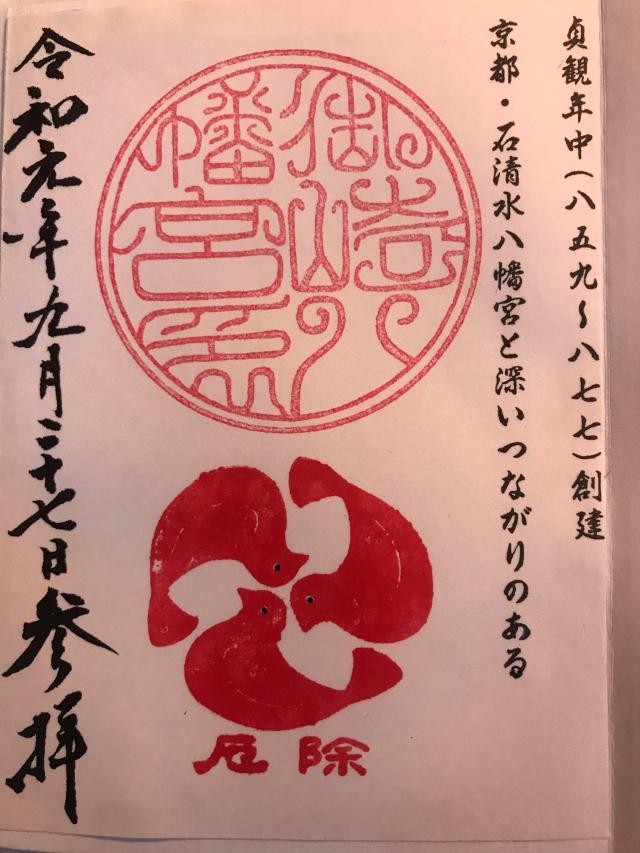 貞観年中(八五九〜八七七)創建
京都・石清水八幡宮と深いつながりのある
御崎八
幡宮印
厄除
令和元年九月二十七日参拝